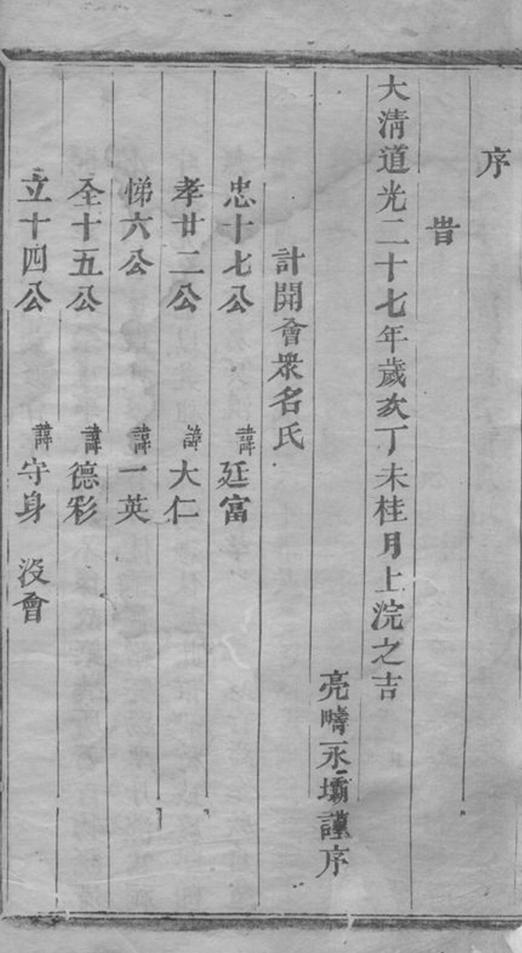 序
昔
大清道光二十七年歲次丁未桂月上浣之吉
亮疇永壩謹序
計開會眾名氏
忠十七公 諱廷富
孝廿二公 諱大仁
悌六公 諱一英
全十五公 諱德彩
立十四公 諱守身 沒會